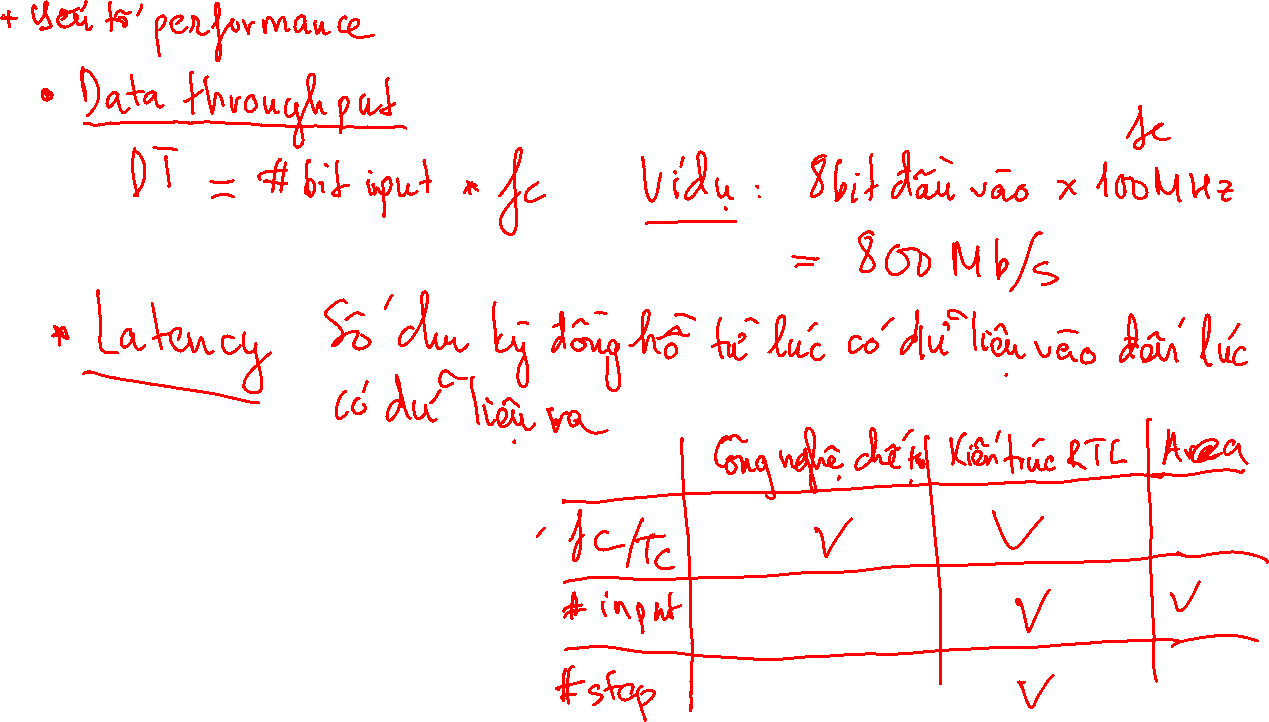 + yếu tố performance
• Data throughput
DT = # bit input * fc Ví dụ: 8bit đầu vào x 100MHz
fc
= 800 Mb/s
* Latency Số chu kỳ đồng hồ từ lúc có dữ liệu vào đến lúc
có dữ liệu ra
Công nghệ chế tạo Kiến trúc RTL Area
fc/Tc V V
# input V V
# stop V